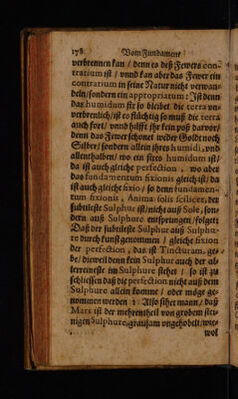 178 Vom Fundament
verbrennen kan / denn es deß Fewers con-
trarium ist / vnnd kan aber das Fewer ein
contrarium in seine Natur nicht verwan-
deln/sondern ein appropriatum: Ist denn
das humidum fix so bleibet die terra vn
verbrenlich/ist es flüchtig so muß die terra
auch fort/ vnnd hilfft ihr kein poß darvor/
denn das Fewer schonet weder Goldt noch
Silber/ sondern allein ihres humidi, vnd
allenthalben/ wo ein fixes humidum ist/
da ist auch gleiche perfection, wo aber
das fundamentum fixionis gleich ist/ da
ist auch gleiche fixio/ so denn fundamen-
tum fixionis, Anima solis scilicet, der
subtileste Sulphur ist/nicht auß Sole, son-
dern auß Sulphure entsprungen/folget:
Daß der subtileste Sulphur auß Sulphu-
re durch kunst genommen / gleiche fixion
der perfection, das ist Tincturam, ge-
be/ dieweil denn kein Sulphur auch der al-
lerreineste im Sulphure stehet / so ist zu
schliessen daß die perfection nicht auß dem
Sulphure allein komme / oder möge ge-
nommen werden: Also sihet mann/ daß
Mars ist der mehrentheil von grobem stei-
nigen Sulphure, grausam vngehobelt/wie-
wol